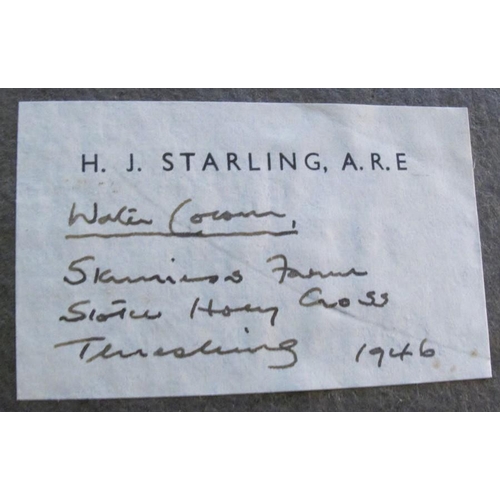 H. J. STARLING, A.R.E
Water Colour,
Farm
Stoke Holy Cross
Threshing 1946